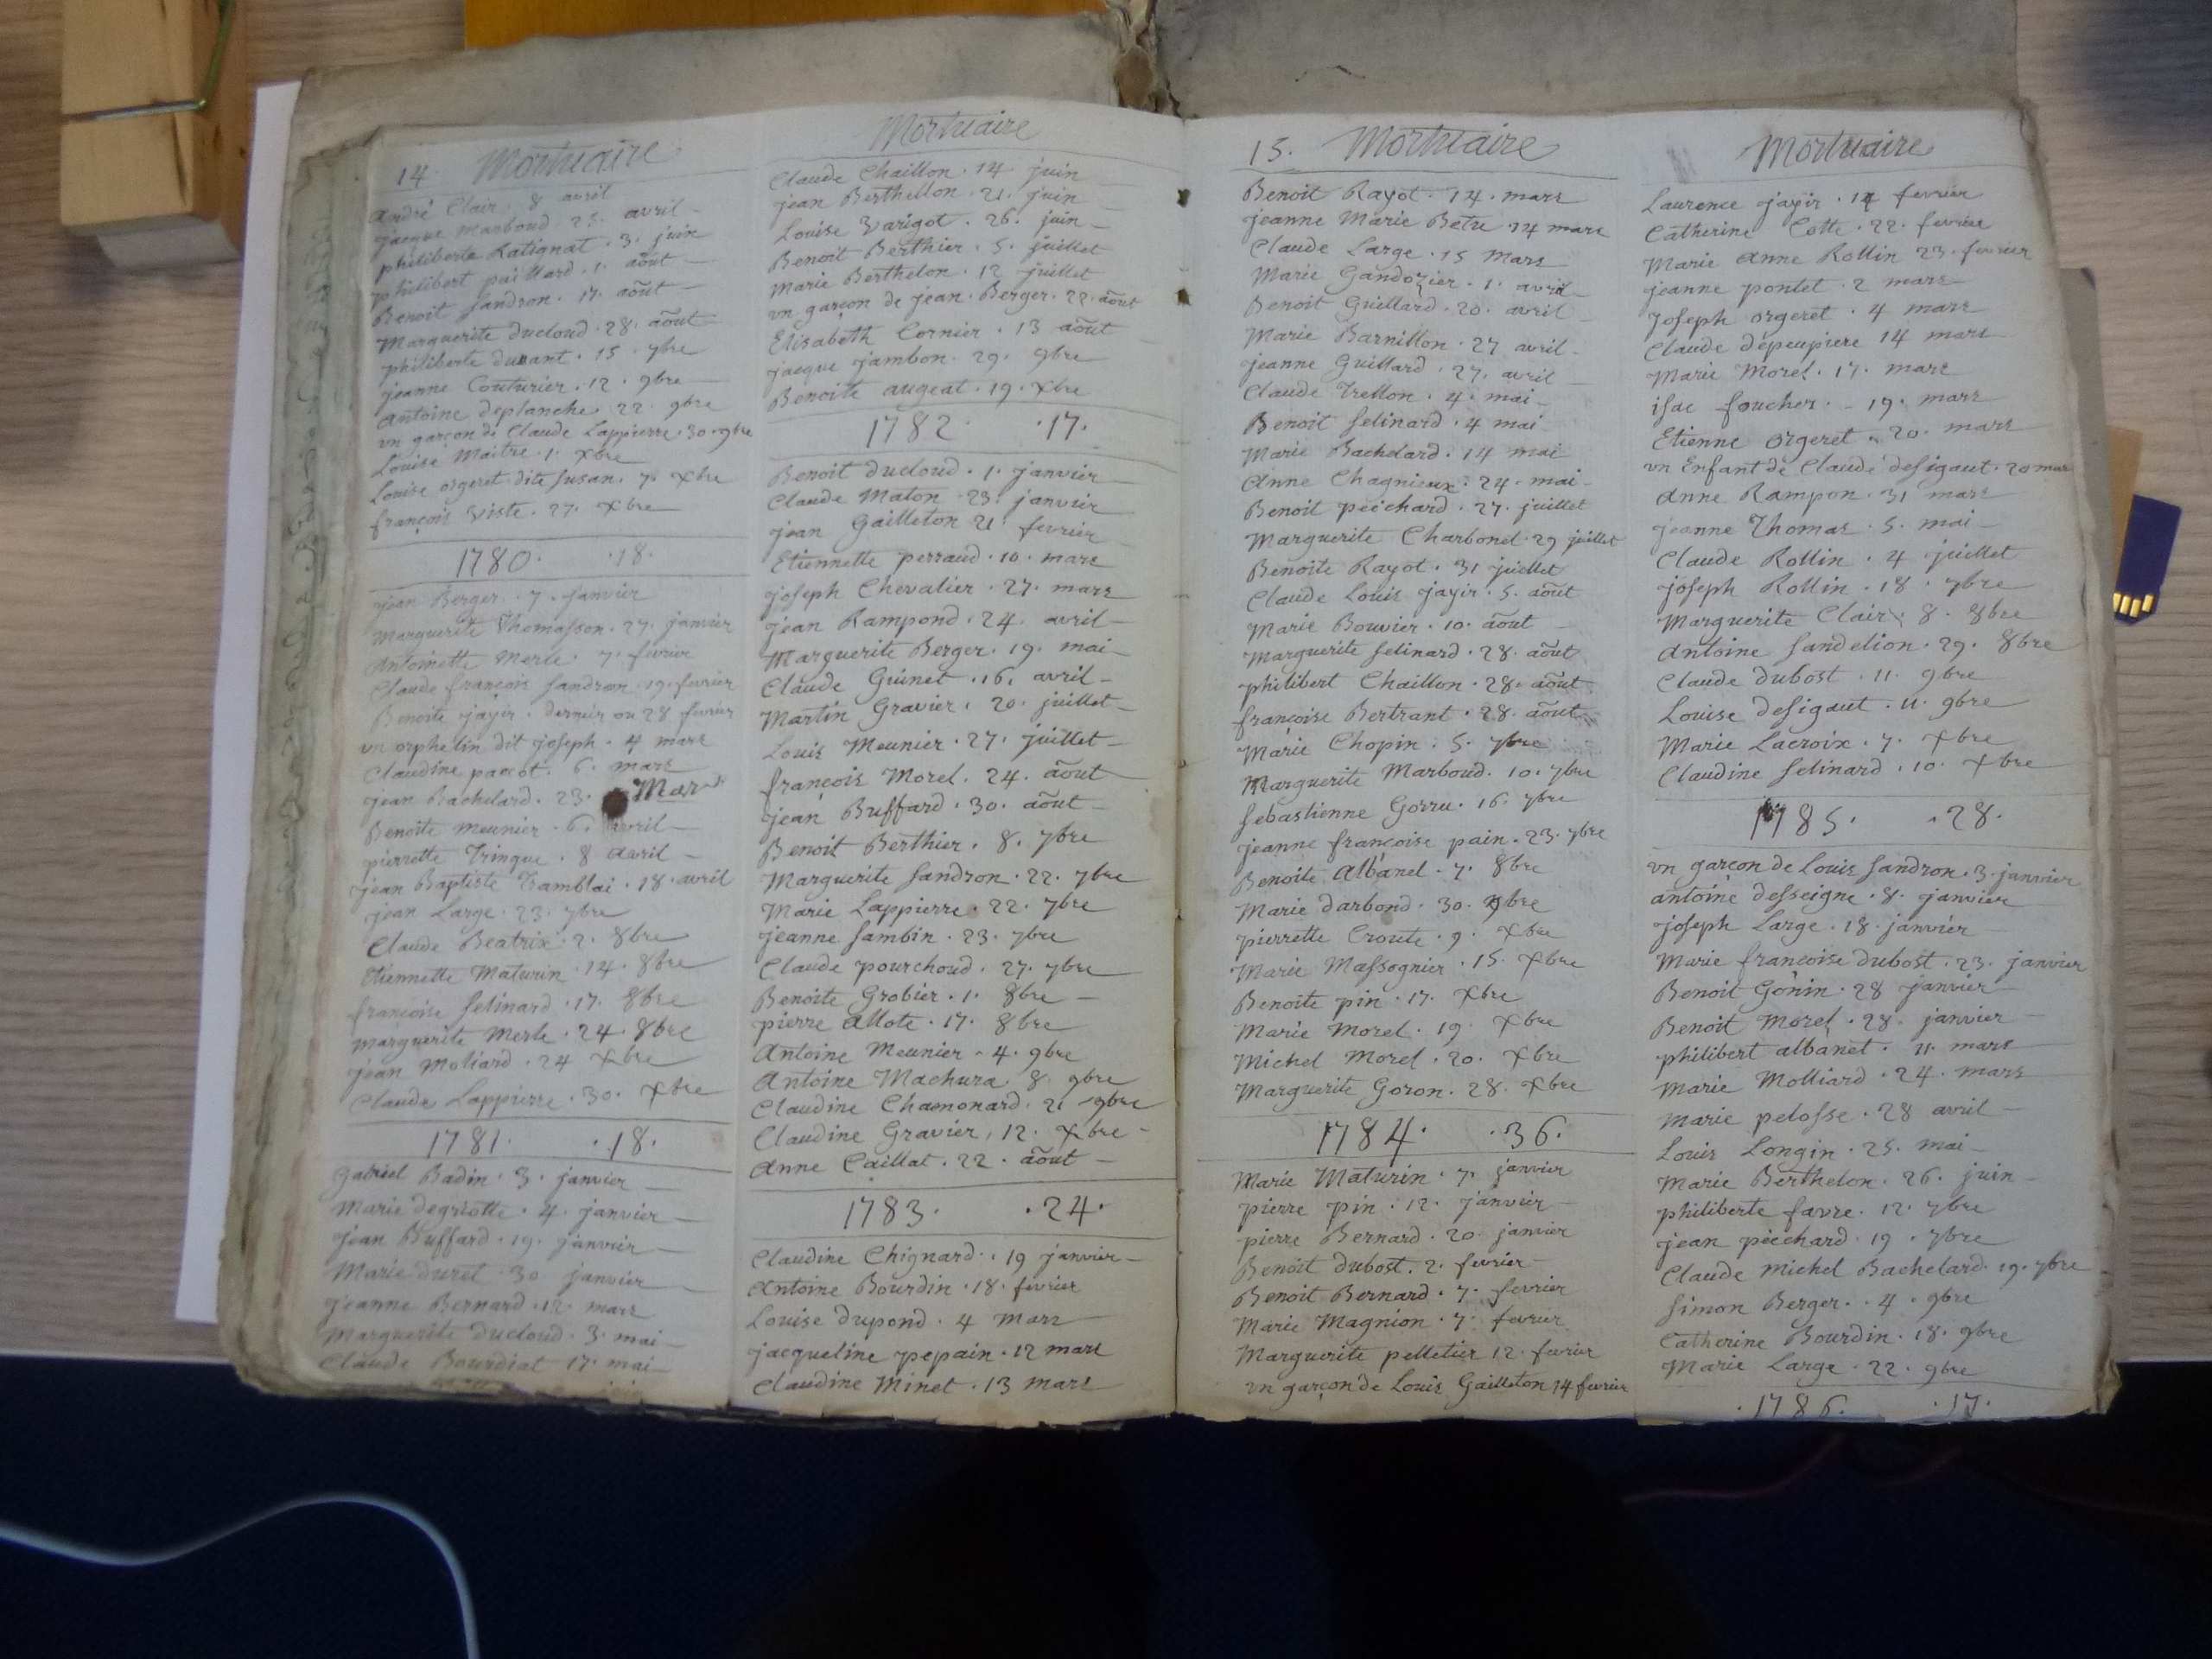 14. Mortuaire
André Clair. 8 avril
jacque Marboud 25. avril
philiberte Ratignat. 3. juin
philibert paillard. 1. août
Benoit Sandron. 17. août
Marguerite ducloud. 28. août
philiberte durant. 15. 7bre
jeanne Couturier. 12. 9bre
Antoine deplanche. 22. 9bre
un garçon de Claude Lappierre. 30. 9bre
Louise Maitre. 1. Xbre
Louise orgeret dite Susan. 7. Xbre
françois viste. 27. Xbre
1780. .18.
jean Berger. 7. janvier
Marguerite Thomasson. 27. janvier
Antoinette Merle. 7. fevrier
Claude françois Sandron. 19. fevrier
Benoite jayir. dernier ou 28 fevrier
un orphelin dit joseph. 4 mars
Claudine pacot. 6. mars
jean Bachelard. 23. Mars
Benoite Meunier. 6. avril
pierrette Tringue. 8 avril
jean Baptiste Tramblai. 18. avril
jean Large. 23. 7bre
Claude Beatrix. 2. 8bre
Etiennette Maturin. 14. 8bre
françoise Selinard. 17. 8bre
Marguerite Merle. 24. 8bre
jean Moliard. 24 Xbre
Claude Lappierre. 30. Xbre
1781. .18.
Gabriel Badin. 3. janvier
Marie degriotte. 4. janvier
jean Buffard. 19. janvier
Marie duret. 30 janvier
jeanne Bernard. 12. mars
Marguerite ducloud. 3. mai
Claude Bourdiat 17. mai
Mortuaire
Claude Chaillon. 14. juin
jean Berthillon. 21. juin
Louise Varigot. 26. juin
Benoit Berthier. 5. juillet
Marie Berthelon. 12 juillet
un garçon de jean. Berger. 22. août
Elisabeth Cornier. 13 août
jacque jambon. 29. 9bre
Benoite augeat. 19. Xbre
1782. .17.
Benoit ducloud. 1. janvier
Claude Maton. 23. janvier
jean Gailleton 21 fevrier
Etiennette perraud. 10. mars
joseph Chevalier. 27. mars
jean Rampond. 24. avril
Marguerite Berger. 19. mai
Claude Grinet. 16. avril
Martin Gravier. 20. juillet
Louis Meunier. 27. juillet
françois Morel. 24. août
jean Buffard. 30. août
Benoit Berthier. 8. 7bre
Marguerite Sandron. 22. 7bre
Marie Lappierre. 22. 7bre
jeanne Sambin. 23. 7bre
Claude pourchoud. 27. 7bre
Benoite Grobier. 1. 8bre
pierre Allote. 17. 8bre
Antoine Meunier. 4. 9bre
Antoine Machura. 8. 9bre
Claudine Chamonard. 21 9bre
Claudine Gravier. 12. Xbre
Anne Caillat. 22. août
1783. .24.
Claudine Chignard. 19 janvier
Antoine Bourdin. 18. fevrier
Louise dupond. 4 mars
jacqueline pepain. 12 mars
Claudine Minet. 13 mars
15. Mortuaire
Benoit Rayot. 14. mars
jeanne Marie Betu 14 mars
Claude Large. 15 Mars
Marie Gandozier. 1. avril
Benoit Guillard. 20. avril
Marie Barnillon. 27 avril
jeanne Guillard. 27. avril
Claude Trellon. 4. mai
Benoit Selinard. 4 mai
Marie Bachelard. 14 mai
Anne Chagnieux. 24. mai
Benoit peichard. 27. juillet
Marguerite Charbonel. 29 juillet
Benoite Rayot. 31 juillet
Claude Louis jayir. 5. août
Marie Bouvier. 10. août
Marguerite Selinard. 28. août
philibert Chaillon. 28. août
françoise Bertrant. 28. août
Marie Chopin. 5. 7bre
Marguerite Marboud. 10. 7bre
Sebastienne Gorru. 16. 7bre
jeanne françoise pain. 23. 7bre
Benoite Albanel. 7. 8bre
Marie darbond. 30. 9bre
pierrette Croute. 9. Xbre
Marie Massognier. 15. Xbre
Benoite pin. 17. Xbre
Marie Morel. 19. Xbre
Michel Morel. 20. Xbre
Marguerite Goron. 28. Xbre
1784. .36.
Marie Maturin. 7. janvier
pierre pin. 12. janvier
pierre Bernard. 20 janvier
Benoit dubost. 2. fevrier
Benoit Bernard. 7. fevrier
Marie Magnion. 7. fevrier
Marguerite pelletier 12. fevrier
un garçon de Louis Gailleton 14 fevrier
Mortuaire
Laurence jayir. 14 fevrier
Catherine Cotte. 22. fevrier
Marie anne Rollin 23. fevrier
jeanne pontet. 2 mars
joseph orgeret. 4 mars
Claude dépeupiere 14 mars
Marie Morel. 17. mars
isac foucher. 19. mars
Etienne orgeret. 20. mars
un Enfant de Claude desigaut. 20 mars
Anne Rampon. 31 mars
jeanne Thomas. 5. mai
Claude Rollin. 4 juillet
joseph Rollin. 18. 7bre
Marguerite Clair. 8. 8bre
Antoine Sandelion. 29. 8bre
Claude dubost. 11. 9bre
Louise desigaut. 11. 9bre
Marie Lacroix. 7. Xbre
Claudine Selinard. 10. Xbre
1785. .28.
un garçon de Louis Sandron. 3. janvier
antoine desseigne. 8. janvier
joseph Large. 18. janvier
Marie françoise dubost. 23. janvier
Benoit Gonin. 28 janvier
Benoit Morel. 28. janvier
philibert albanet. 11. mars
Marie Molliard. 24. mars
Marie pelosse. 28 avril
Louis Longin. 25. mai
Marie Berthelon. 26. juin
philiberte favre. 12. 7bre
jean peichard. 19. 7bre
Claude Michel Bachelard. 19. 7bre
Simon Berger. 4. 9bre
Catherine Bourdin. 18. 9bre
Marie Large. 22. 9bre
.1786. .17.